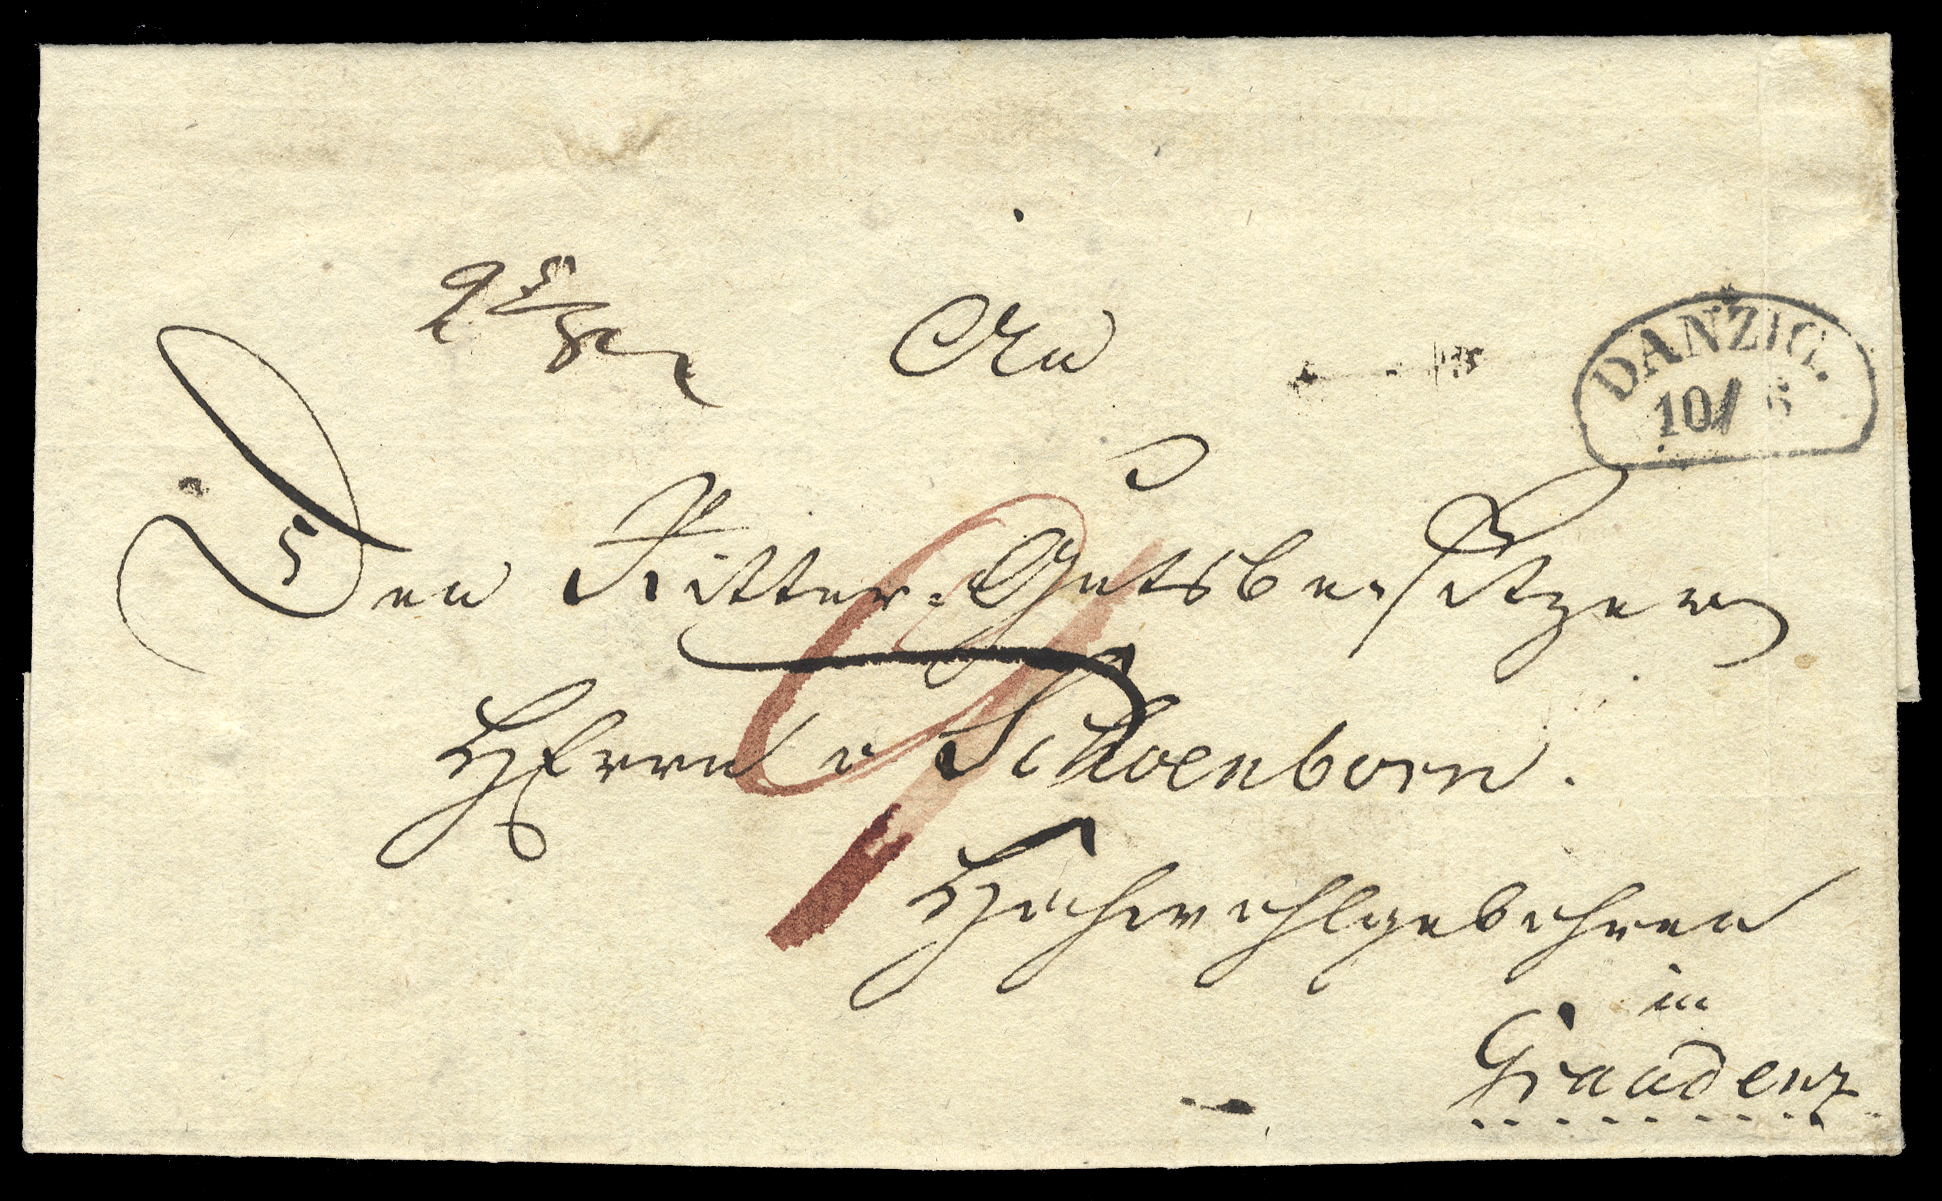 An
DANZIG.
10/ 6
5
Den Ritter-Gutsbesitzer
Herrn v Schoenborn.
Hochwohlgebohren
in
Graudenz